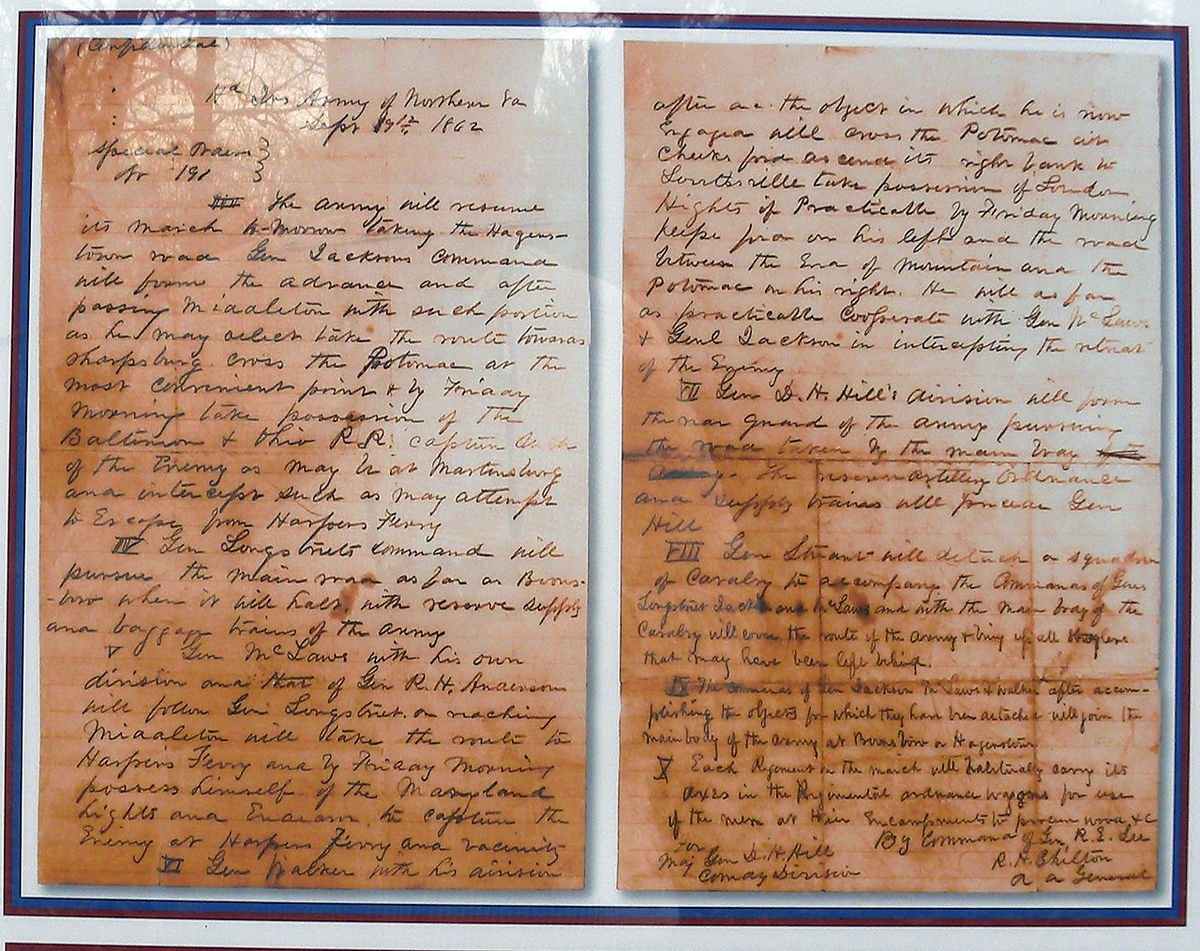 (Confidential)
Hd Qrs Army of Northern Va
Sept 9th 1862
Special Orders
No 191
III The army will resume
its march to-morrow taking the Hagers-
town road Gen Jacksons Command
will form the advance and after
passing Middleton with such portion
as he may select take the route towards
Sharpsburg. cross the Potomac at the
most convenient point & by Friday
Morning take possession of the
Baltimore & Ohio R.R. capture such
of the Enemy as may be at Martinsburg
and intercept such as may attempt
to Escape from Harpers Ferry
IV Gen Longstreets command will
pursue the main road as far as Boons-
-boro where it will halt. with reserve supply
and baggage trains of the army
V Gen McLaws with his own
division and that of Gen R.H. Andersons
will follow Gen Longstreet. on reaching
Middleton will take the route to
Harpers Ferry and by Friday Morning
possess himself of the Maryland
Hights and Endeavor to capture the
Enemy at Harpers Ferry and vacinity
VI Gen Walker with his division
after ac. the object in which he is now
Engaged will cross the Potomac at
Cheeks ford ascend its right bank to
Lovettsville take possession of Loudon
Hights if Practicable by Friday Morning
Keeps ford on his left and the road
between the End of mountain and the
Potomac on his right. He will as far
as practicable Cooperate with Gen McLaws
& Genl Jackson in intercepting the retreat
of the Enemy
VII Gen D. H. Hill's division will form
the rear guard of the army pursuing
the road taken by the main body
The reserve artillery Ordnance
and supply trains will precede Gen
Hill
VIII Gen Stuart will detach a squadron
of Cavalry to accompany the Commands of Gens
Longstreet Jackson and McLaws and with the main body of the
Cavalry will cover the route of the Army & bring up all straglers
that may have been left behind.
IX The commands of Gen Jackson McLaws & Walker after accom-
plishing the objects for which they have been detached will join the
main body of the army at Boonsboro or Hagerstown
X Each Regiment on the march will habitually carry its
axes in the Regimental ordnance waggons for use
of the men at their Encampments to procure wood &c
By Command of Gen R. E. Lee
For
R. H. Chilton
Maj Gen D. H. Hill
A. A. General
Comdg Division